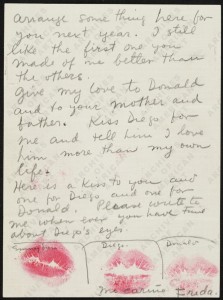 arrange something here for
you next year. I still
like the first one you
made of me better than
the others.
Give my love to Donald
and to your mother and
father. Kiss Diego for
me and tell him I love
him more than my own
life.
Here is a kiss to you and
one for Diego and one for
Donald. Please write to
me when ever you have time
about Diego's eyes.
Diego. Donald
Mi cariño Frida.